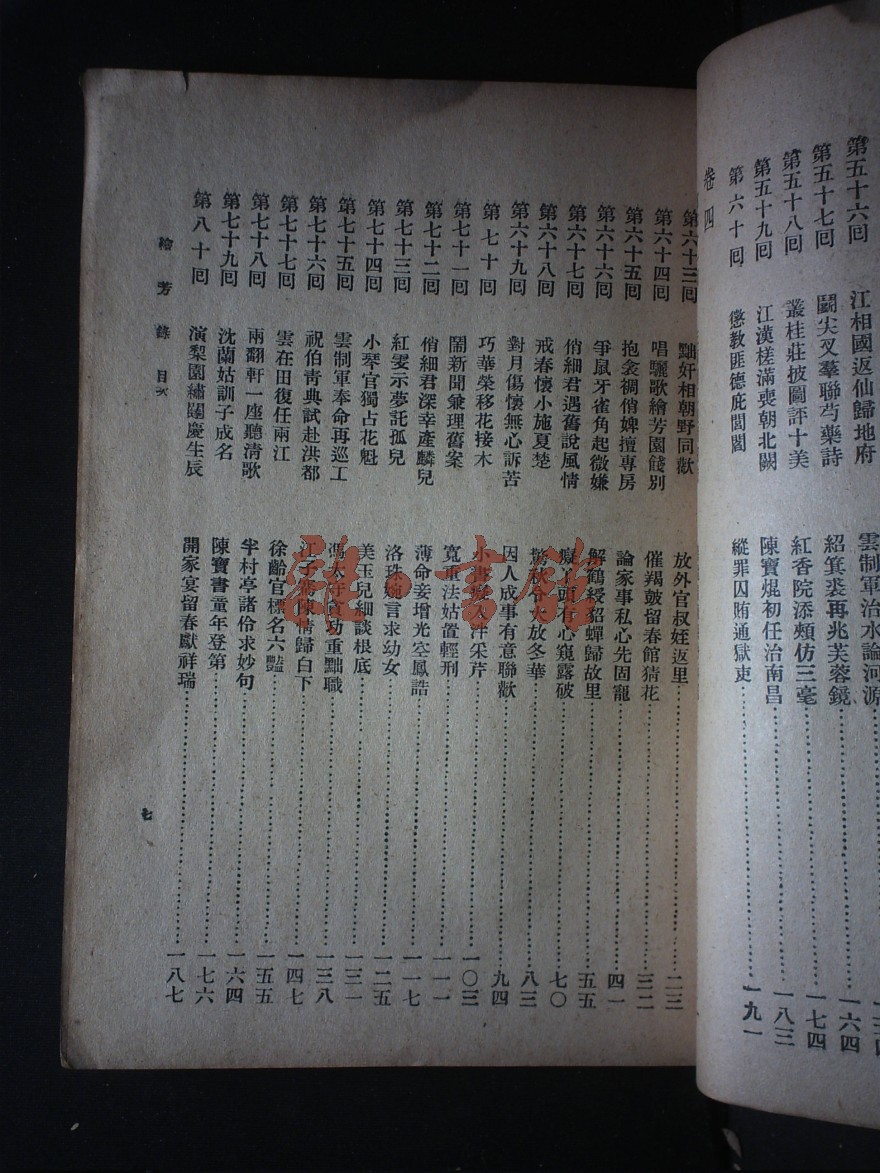 第五十六回 江相國返仙歸地府 雲制軍治水論河源
第五十七回 鬭尖叉羣聯芍藥詩 紹箕裘再兆芙蓉鏡 一六四
第五十八回 叢桂莊披圖評十美 紅香院添頰仿三毫 一七四
第五十九回 江漢槎滿喪朝北闕 陳寶焜初任治南昌 一八三
第六十回 懲教匪德庇閭閻 縱罪囚賄通獄吏 一九一
卷四
第六十三回 黜奸相朝野同歡 放外官叔姪返里 二三
第六十四回 唱驪歌繪芳園餞別 催羯皷留春館猜花 三二
第六十五回 抱衾裯俏婢擅專房 論家事私心先固寵 四一
第六十六回 爭鼠牙雀角起微嫌 解鶴綬貂蟬歸故里 五五
第六十七回 俏細君遇舊說風情 癡丫頭有心窺露破 七〇
第六十八回 戒春懷小施夏楚 放冬華 八三
第六十九回 對月傷懷無心訴苦 因人成事有意聯歡 九四
第七十回 巧華榮移花接木 小書癡入泮采芹 一〇三
第七十一回 鬧新聞兼理舊案 寬重法姑置輕刑 一一一
第七十二回 俏細君深幸產麟兒 薄命妾增光空鳳誥 一一七
第七十三回 紅雯示夢託孤兒 洛珠婉言求幼女 一二五
第七十四回 小琴官獨占花魁 美玉兒細談根底 一三一
第七十五回 雲制軍奉命再巡工 馮太守貪功重黜職 一三八
第七十六回 祝伯青典試赴洪都 江子騫陳情歸白下 一四七
第七十七回 雲在田復任兩江 徐齡官標名六豔 一五五
第七十八回 兩翻軒一座聽清歌 半村亭諸伶求妙句 一六四
第七十九回 沈蘭姑訓子成名 陳寶書童年登第 一七六
第八十回 演梨園繡闥慶生辰 開家宴留春獻祥瑞 一八七
繪芳錄 目次
七